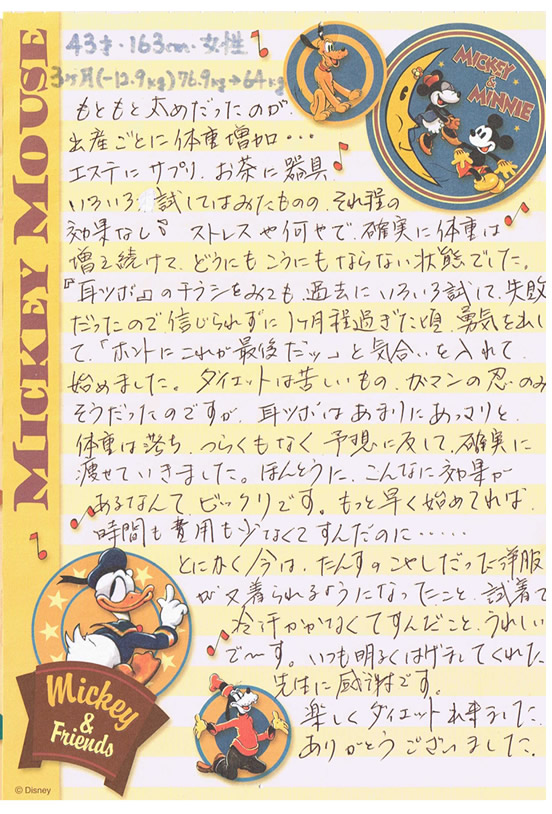 MICKEY MOUSE
43才・163cm・女性
3ヶ月(-12.9kg)76.9kg→64kg
MICKEY & MINNIE
もともと太めだったのが
出産ごとに体重増加・・・
エステにサプリ、お茶に器具、
いろいろ試してはみたものの、それ程の
効果なし。ストレスや何やで、確実に体重は
増え続けて、どうにもこうにもならない状態でした。
『耳ツボ』のチラシをみても、過去にいろいろ試して、失敗
だったので信じられずに1ヶ月程過ぎた頃、勇気を出し
て、「ホントにこれが最後だッ」と気合いを入れて、
始めました。ダイエットは苦しいもの、ガマンの忍のみ
そうだったのですが、耳ツボはあまりにあっさりと、
体重は落ち、つらくもなく予想に反して、確実に
痩せていきました。ほんとうに、こんなに効果が
あるなんて、ビックリです。もっと早く始めてれば、
時間も費用も少なくてすんだのに・・・・・・
とにかく今は、たんすのこやしだった洋服
が又着られるようになったこと、試着で
冷汗かかなくてすんだこと、うれしい
で〜す。いつも明るくはげましてくれた
先生に感謝です。
楽しくダイエット出来ました。
ありがとうございました。
Mickey
&
Friends
© Disney